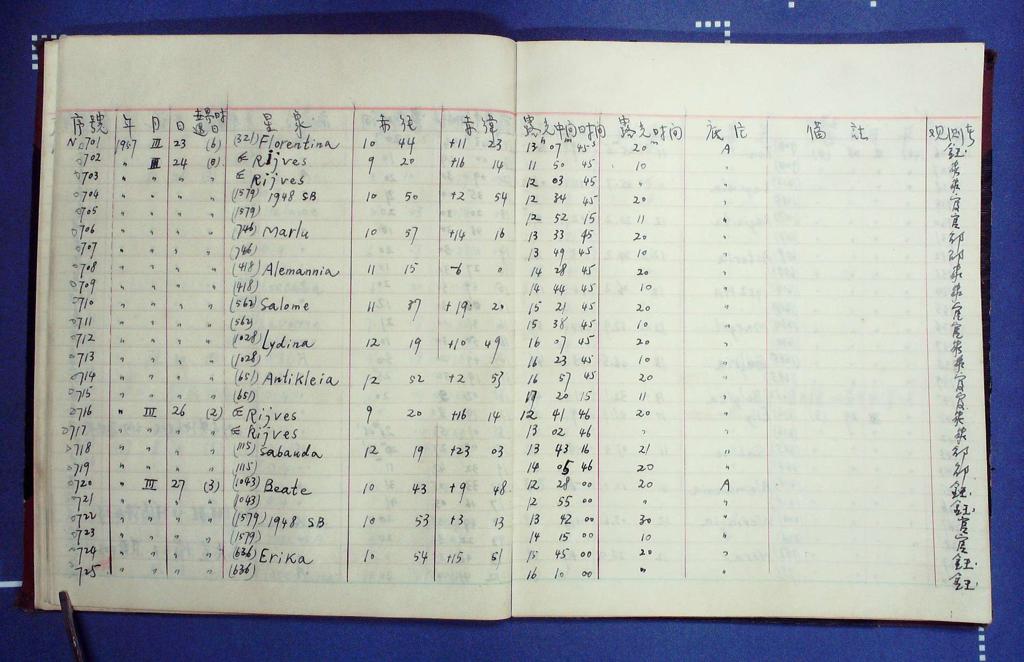 序號 年 月 日 世界时 星象 赤径 赤緯 露光中间时间 露光时间 底片 備註 观测者
退日
N.0701 1957 III 23 (6) (321) Florentina 10 44 +11 23 13h 07m 45s 20m A 鈺.
0702 " III 24 (0) € Rijves 9 20 +16 14 11 50 45 10 "
0703 " " " " € Rijves 12 03 45 " "
0704 " " " " (1579) 1948 SB 10 50 +2 54 12 34 45 20 "
0705 " " " " (1579) 12 52 15 11 "
0706 " " " " (746) Marlu 10 57 +14 16 13 33 45 20 "
0707 " " " " (746) 13 49 45 10 "
0708 " " " " (418) Alemannia 11 15 -6 0 14 28 45 20 "
0709 " " " " (418) 14 44 45 10 "
0710 " " " " (562) Salome 11 37 +19 20 15 21 45 20 "
0711 " " " " (562) 15 38 45 10 "
0712 " " " " (1028) Lydina 12 19 +10 49 16 07 45 20 "
0713 " " " " (1028) 16 23 45 10 "
0714 " " " " (651) Antikleia 12 52 +2 53 16 57 45 20 "
0715 " " " " (651) 17 20 15 11 "
0716 " III 26 (2) € Rijves 9 20 +16 14 12 41 46 20 "
0717 " " " " € Rijves 13 02 46 " "
0718 " " " " (1115) Sabauda 12 19 +23 03 13 43 16 21 "
0719 " " " " (1115) 14 05 46 20 "
0720 " III 27 (3) (1043) Beate 10 43 +9 48 12 28 00 20 A 鈺.
0721 " " " " (1043) 12 55 00 " " 鈺.
0722 " " " " (1579) 1948 SB 10 53 +3 13 13 42 00 30 "
0723 " " " " (1579) 14 15 00 10 "
0724 " " " " (636) Erika 10 54 +15 51 15 45 00 20 " 鈺.
0725 " " " " (636) 16 10 00 " " 鈺.